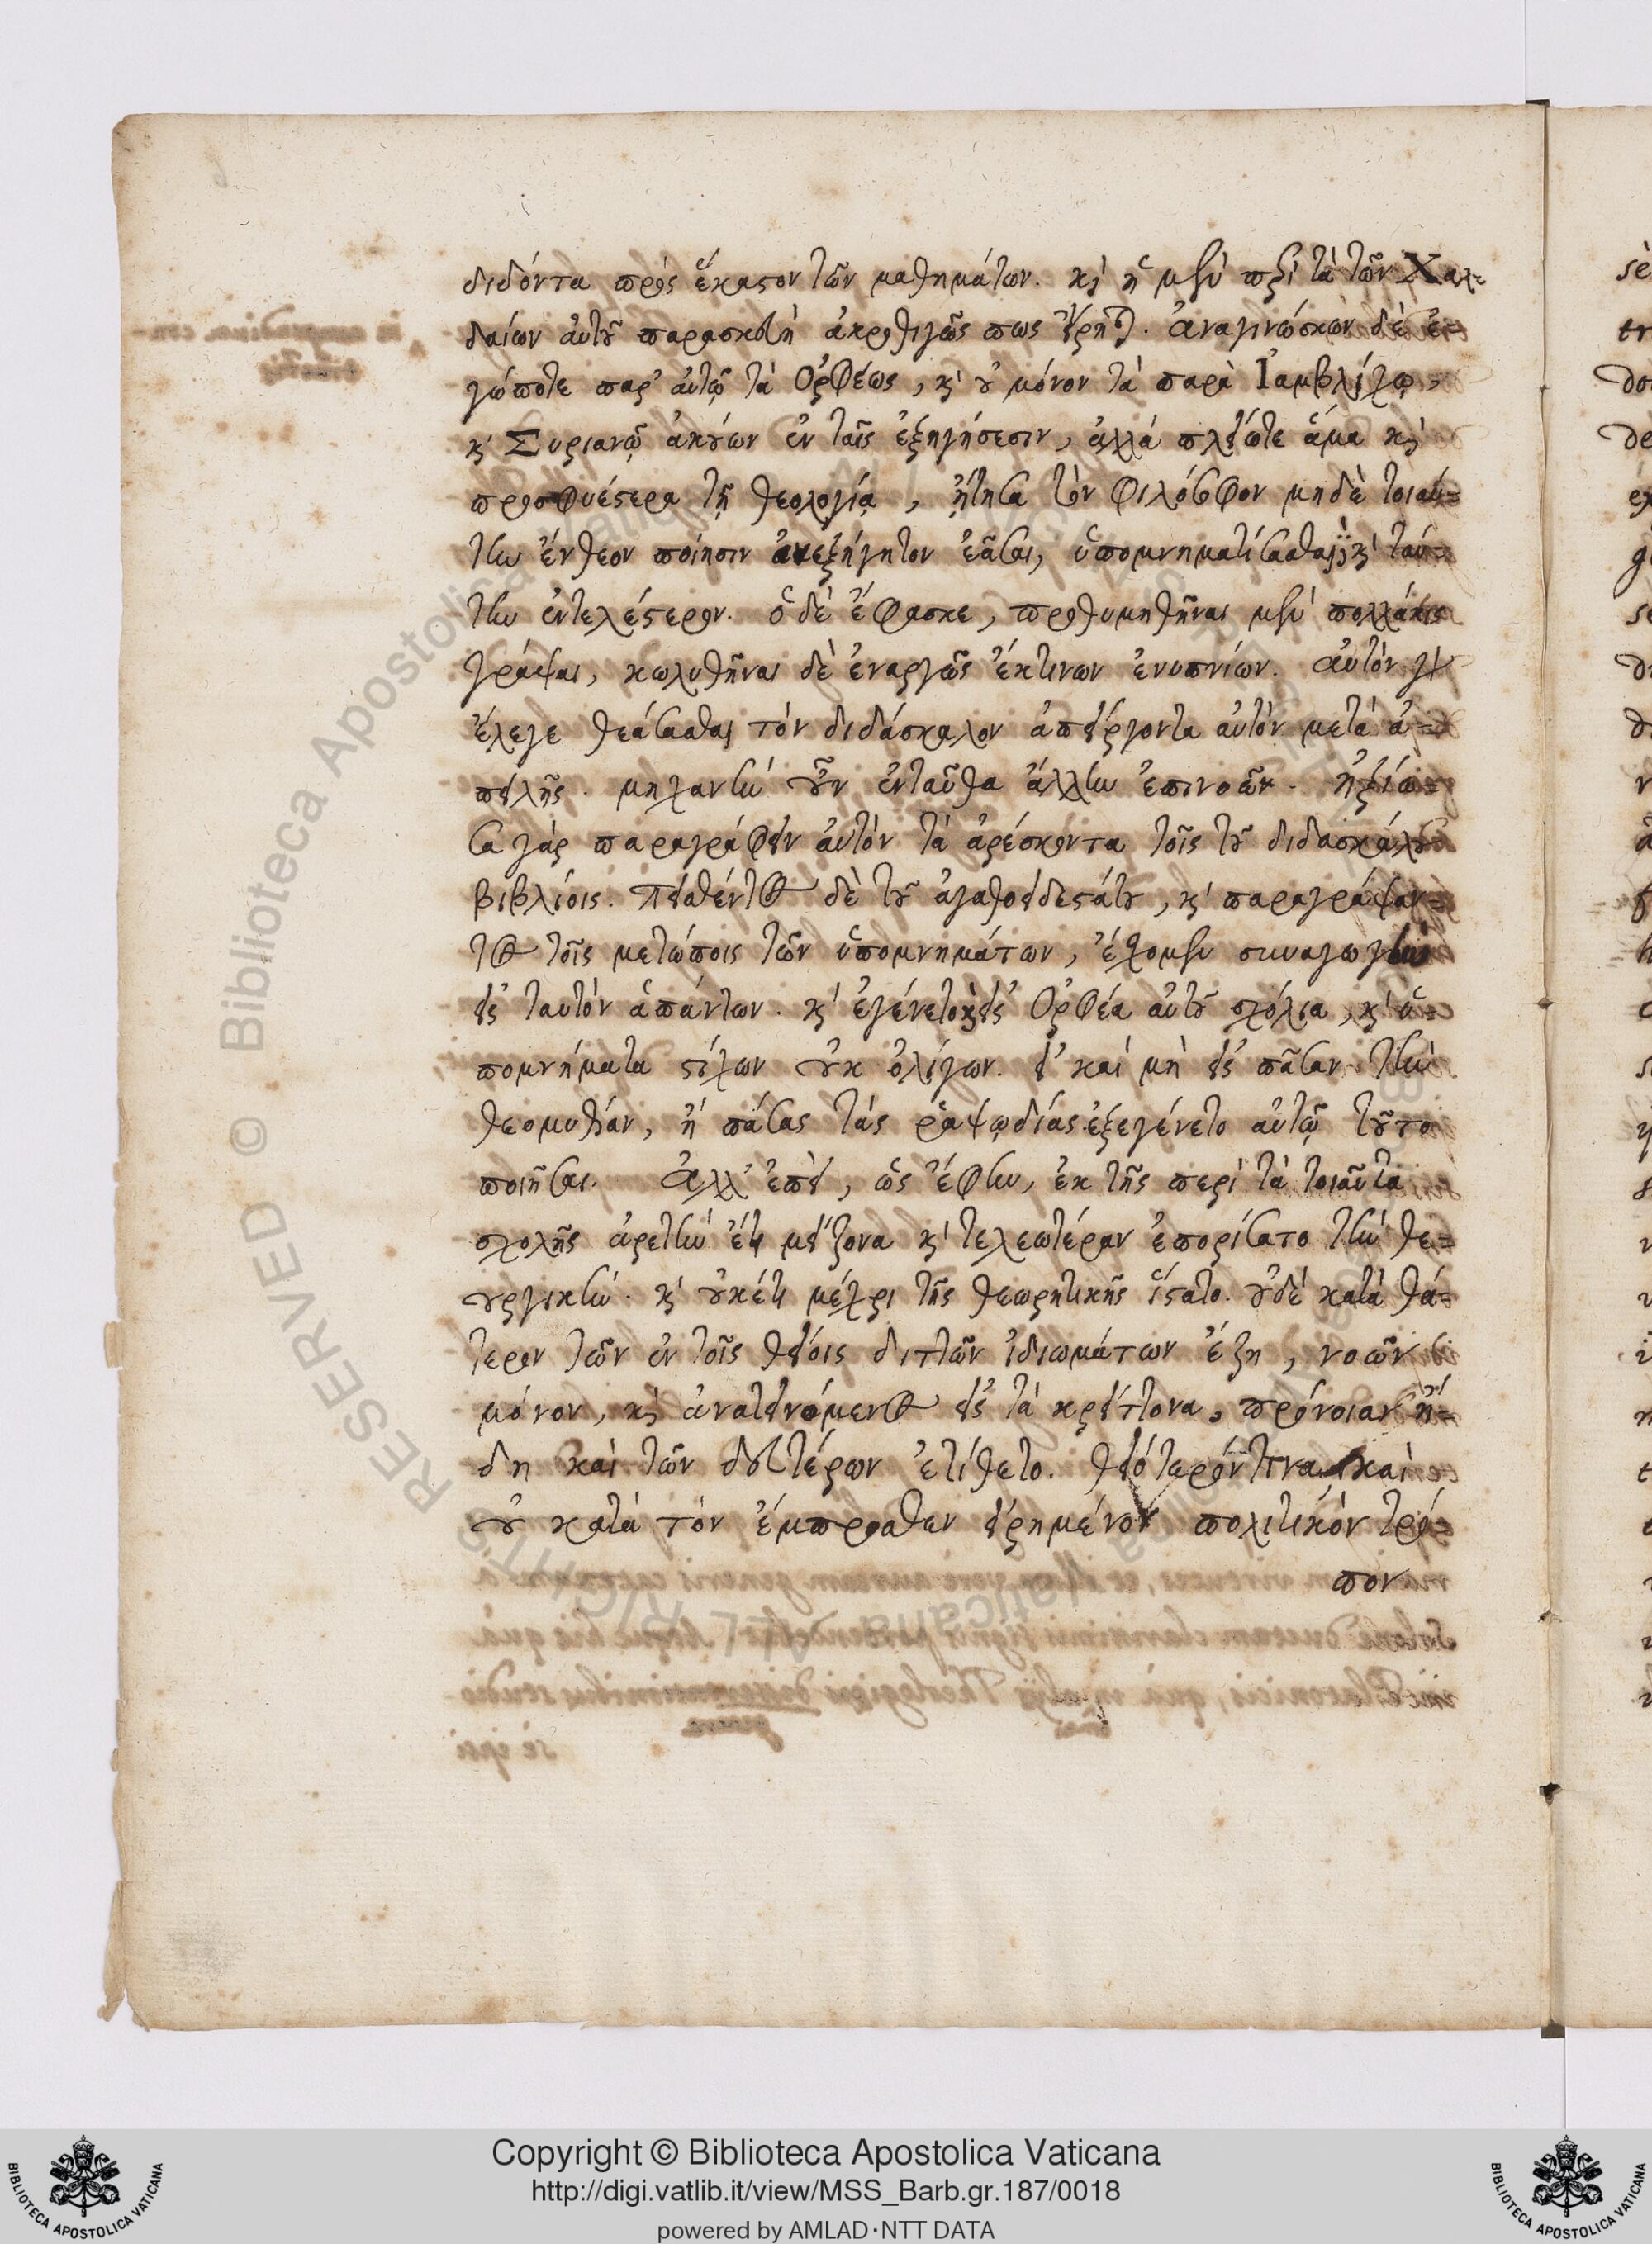 διδόντα πρὸς ἕκαστον τῶν μαθημάτων. κὶ ἡ μὲν περὶ τὰ τῶν Χαλ-
δαίων αὐτοῦ παρασκευὴ ἀκροθιγῶς πως εἴρηται. ἀναγινώσκων δὲ ἐ-
γώποτε παρ' αὐτῷ τὰ Ὀρφέως, κὶ οὐ μόνον τὰ παρὰ Ἰαμβλίχῳ,
κὶ Συριανῷ ἀκούων ἐν ταῖς ἐξηγήσεσιν, ἀλλά πλείωτε ἅμα κὶ
προσφυέστερα τῇ θεολογίᾳ, ᾔτησα τὸν φιλόσοφον μηδὲ τοιαύ-
την ἔνθεον ποίησιν ἀνεξήγητον ἐᾶσαι, ὑπομνηματίσασθαι κὶ ταύ-
την ἐντελέστερον. ὁ δὲ ἔφασκε, προθυμηθῆναι μὲν πολλάκις
γράψαι, κωλυθῆναι δὲ ἐναργῶς ἔκτινων ἐνυπνίων. αὐτόν γὰρ
ἔλεγε θεάσασθαι τὸν διδάσκαλον ἀπείργοντα αὐτὸν μετὰ ἀ-
πειλῆς. μηχανὴν οὖν ἐνταῦθα ἄλλην ἐπινοῶν. ἠξίω-
σα γὰρ παραγράφειν αὐτὸν τὰ ἀρέσκοντα τοῖς τοῦ διδασκάλου
βιβλίοις. πεισθέντος δὲ τοῦ ἀγαθοειδεστάτου, κὶ παραγράψαν-
τος τοῖς μετώποις τῶν ὑπομνημάτων, ἔχομεν συναγωγὴν
εἰς ταυτὸν ἁπάντων. κὶ ἐγένετο εἰς Ὀρφέα αὐτοῦ σχόλια, κὶ ὑ-
πομνήματα στίχων οὐκ ὀλίγων. εἰ καί μὴ εἰς πᾶσαν τὴν
θεομυθίαν, ἢ πάσας τὰς ῥαψῳδίας ἐξεγένετο αὐτῷ τοῦτο
ποιῆσαι. Ἀλλ' ἐπεὶ, ὡς ἔφην, ἐκ τῆς περὶ τὰ τοιαῦτα
σχολῆς ἀρετὴν ἔτι μείζονα κὶ τελεωτέραν ἐπορίσατο τὴν θε-
ουργικήν. κὶ οὐκέτι μέχρι τῆς θεωρητικῆς ἵστατο. οὐδὲ κατὰ θά-
τερον τῶν ἐν τοῖς θείοις διττῶν ἰδιωμάτων ἔζη, νοῶν
μόνον, κὶ ἀνατεινόμενος εἰς τὰ κρείττονα, πρόνοιαν ἤ-
δη καὶ τῶν δευτέρων ἐτίθετο. θειότερόν τινα καὶ
οὐ κατὰ τὸν ἔμπροσθεν εἰρημένον πολιτικόν τρό-
πον
Copyright © Biblioteca Apostolica Vaticana
http://digi.vatlib.it/view/MSS_Barb.gr.187/0018
powered by AMLAD·NTT DATA